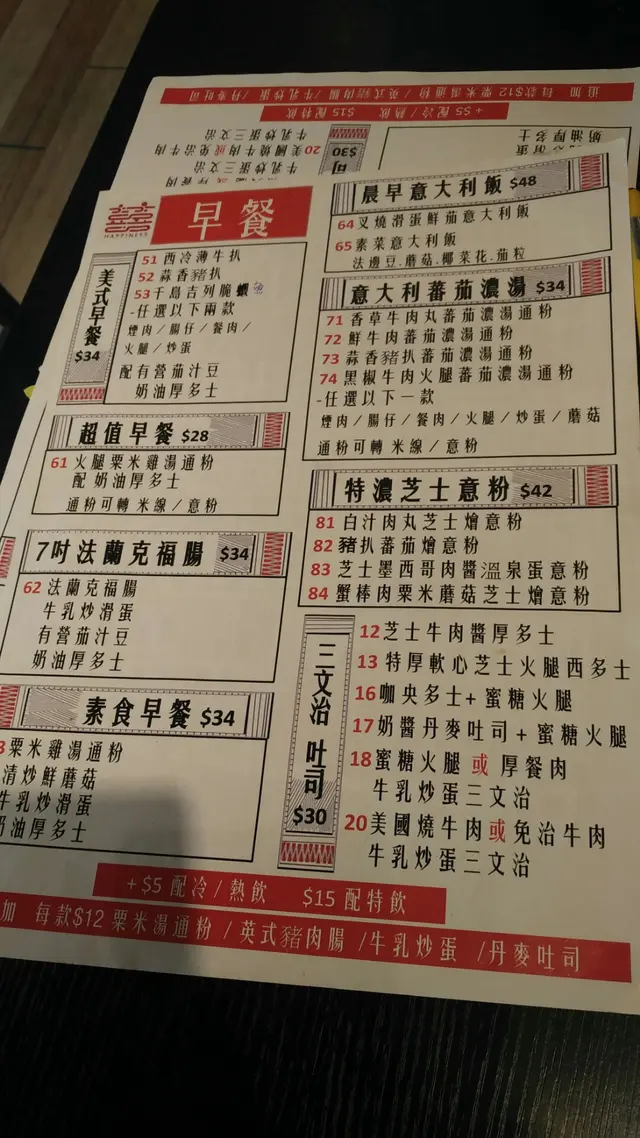 追加 每款$12 粟米湯通粉 / 英式豬肉腸 / 牛乳炒蛋 / 丹麥吐司
+ $5 配冷 / 熱飲 $15 配特飲
牛乳炒蛋三文治
20 美國燒牛肉或免治牛肉
牛乳炒蛋三文治
$30
司
奶油厚多士
HAPPINESS
早餐
美式早餐
$34
51 西冷薄牛扒
52 蒜香豬扒
53 千島吉列脆蝦
-任選以下兩款
煙肉 / 腸仔 / 餐肉 /
火腿 / 炒蛋
配有營茄汁豆
奶油厚多士
超值早餐 $28
61 火腿粟米雞湯通粉
配 奶油厚多士
通粉可轉 米線 / 意粉
7吋法蘭克福腸 $34
62 法蘭克福腸
牛乳炒滑蛋
有營茄汁豆
奶油厚多士
素食早餐 $34
3 粟米雞湯通粉
清炒鮮蘑菇
牛乳炒滑蛋
奶油厚多士
晨早意大利飯 $48
64 叉燒滑蛋鮮茄意大利飯
65 素菜意大利飯
法邊豆.蘑菇.椰菜花.茄粒
意大利蕃茄濃湯 $34
71 香草牛肉丸蕃茄濃湯通粉
72 鮮牛肉蕃茄濃湯通粉
73 蒜香豬扒蕃茄濃湯通粉
74 黑椒牛肉火腿蕃茄濃湯通粉
-任選以下一款
煙肉 / 腸仔 / 餐肉 / 火腿 / 炒蛋 / 蘑菇
通粉可轉 米線 / 意粉
特濃芝士意粉 $42
81 白汁肉丸芝士燴意粉
82 豬扒蕃茄燴意粉
83 芝士墨西哥肉醬溫泉蛋意粉
84 蟹棒肉粟米蘑菇芝士燴意粉
三文治 吐司
$30
12 芝士牛肉醬厚多士
13 特厚軟心芝士火腿西多士
16 咖央多士+ 蜜糖火腿
17 奶醬丹麥吐司 + 蜜糖火腿
18 蜜糖火腿 或 厚餐肉
牛乳炒蛋三文治
20 美國燒牛肉或免治牛肉
牛乳炒蛋三文治
+ $5 配冷 / 熱飲 $15 配特飲
加 每款$12 粟米湯通粉 / 英式豬肉腸 /牛乳炒蛋 /丹麥吐司